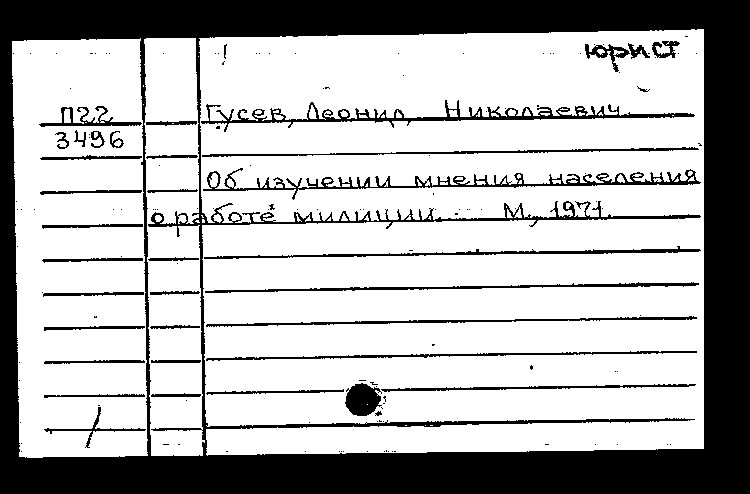 юрист
П22 Гусев, Леонид Николаевич
3496
Об изучении мнения населения
о работе милиции. М., 1971.